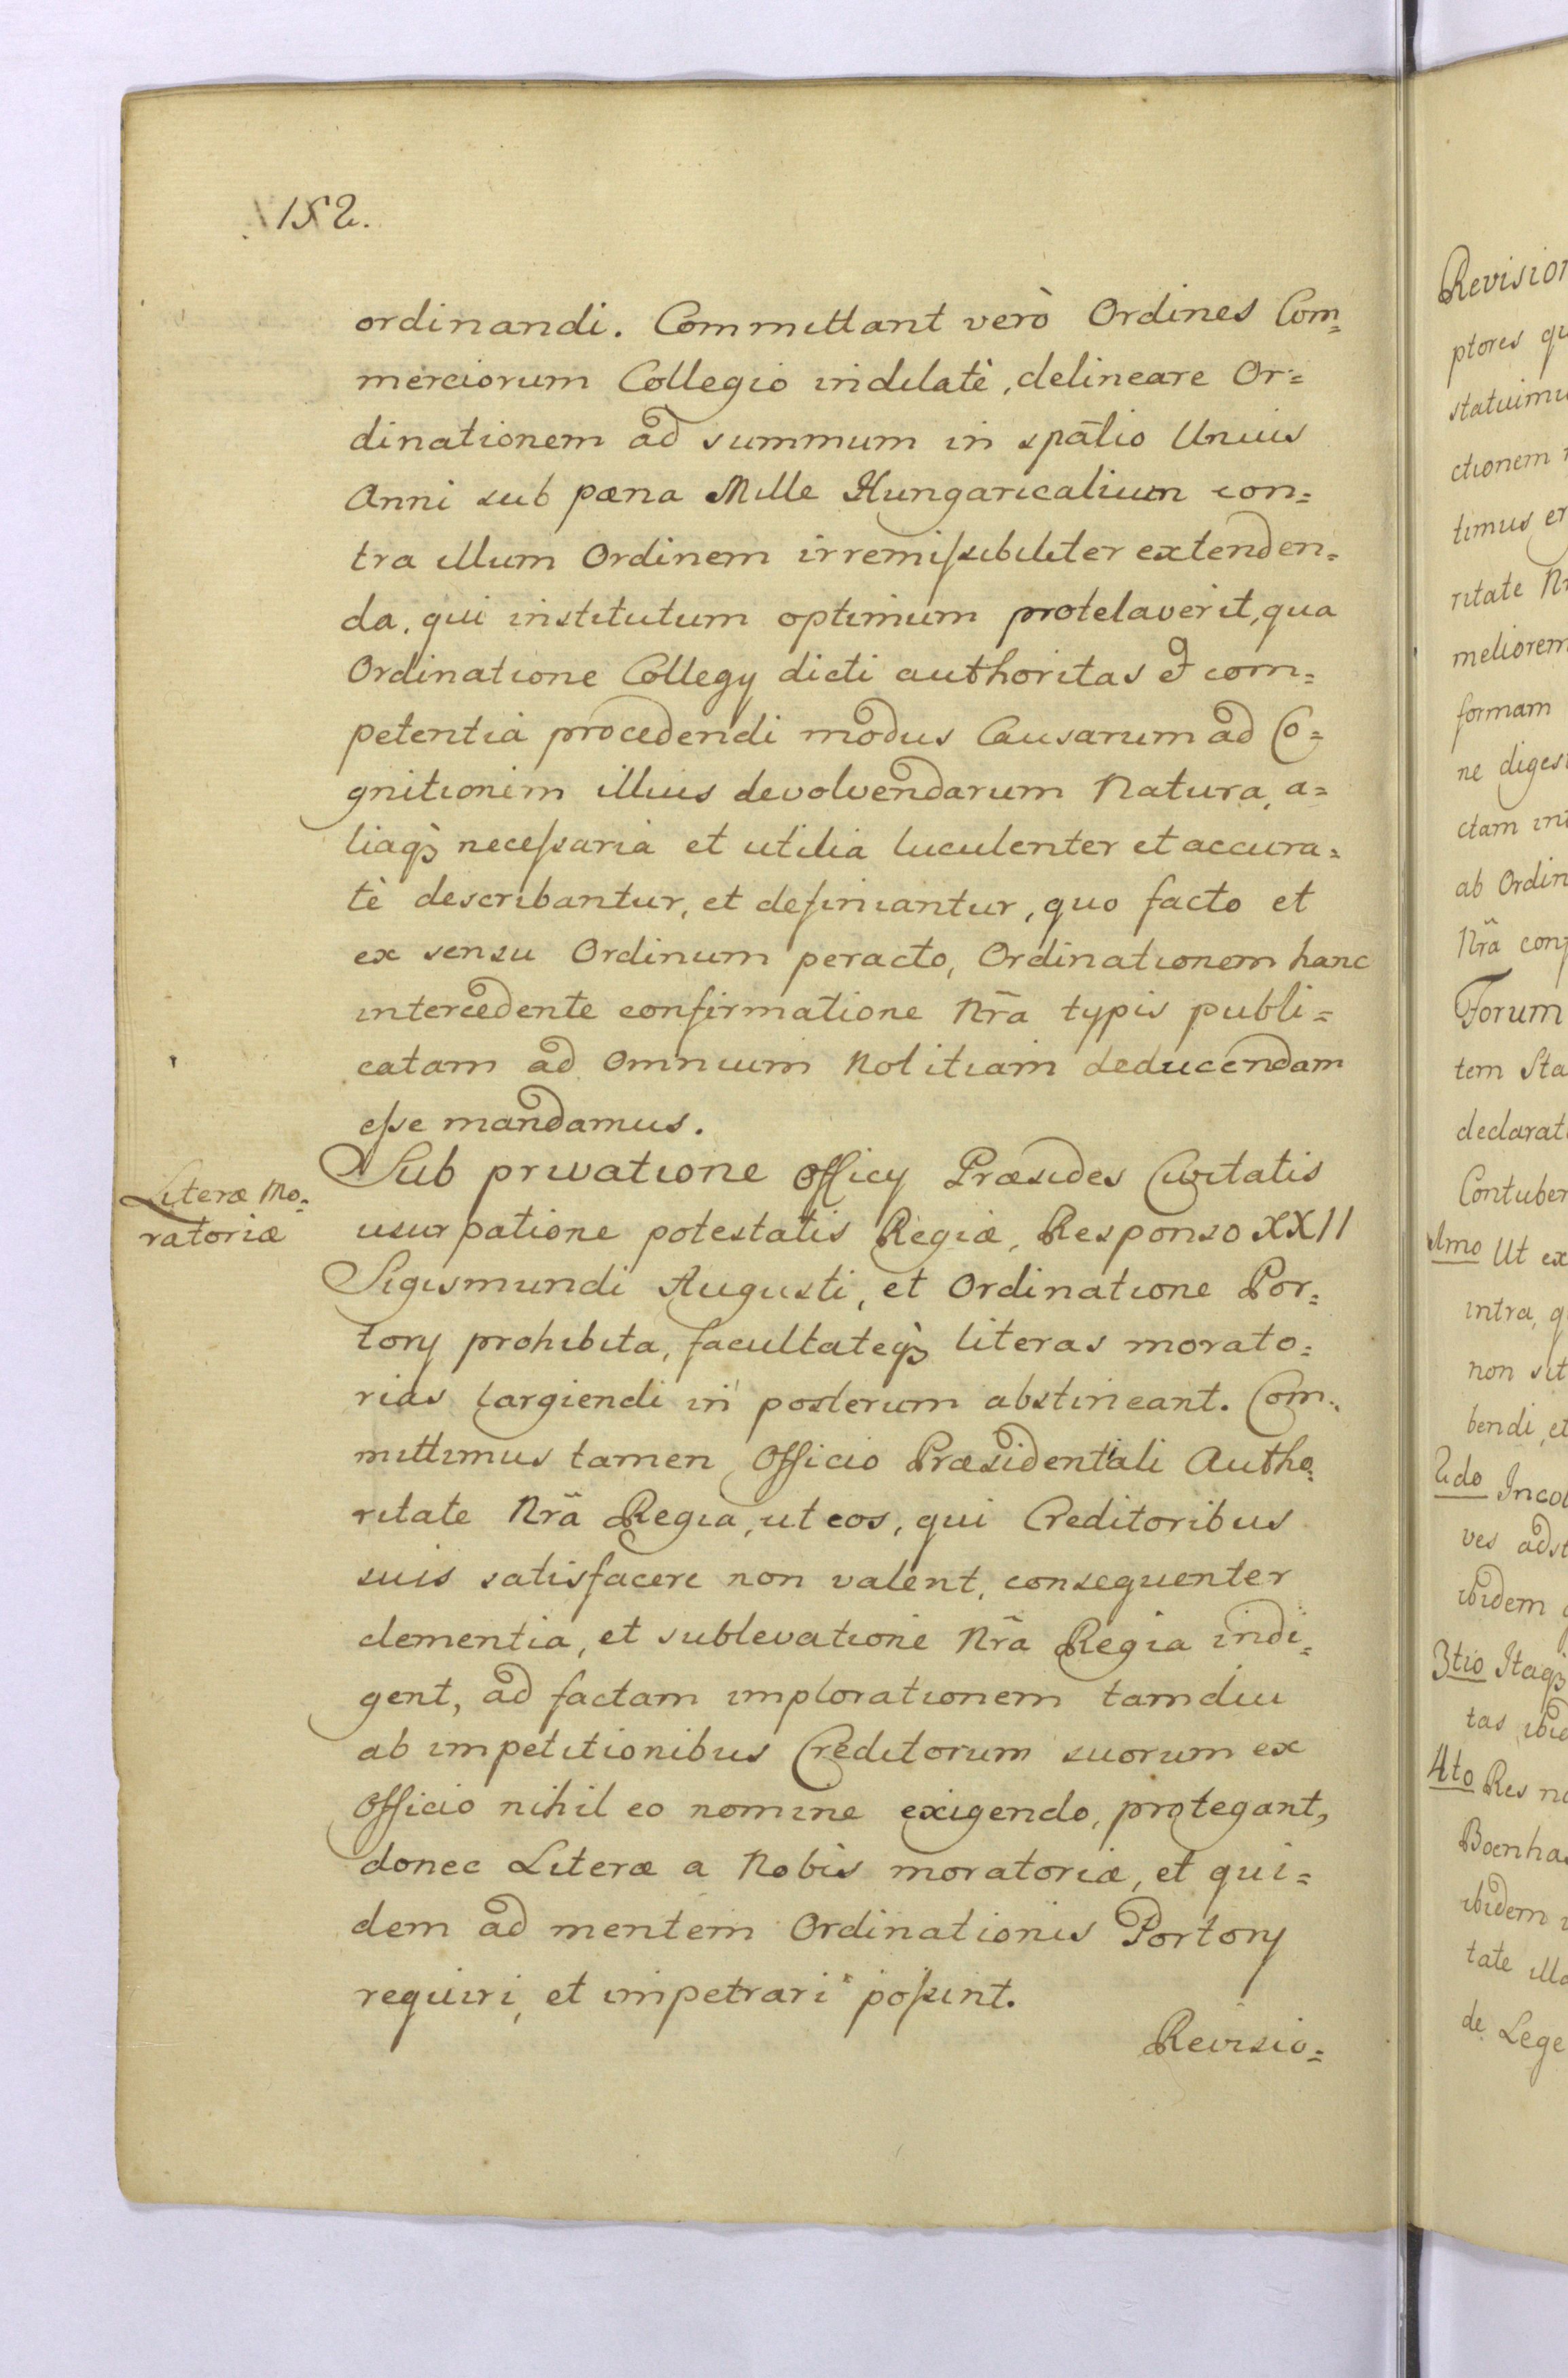 152.
ordinandi. Committant verò Ordines Com=
merciorum Collegio indilatè, delineare Or=
dinationem ad summum in spatio Unius
Anni sub pæna Mille Hungaricalium con=
tra illum Ordinem irremissibiliter extenden=
da, qui institutum optimum protelaverit, qua
Ordinatione Collegy dicti authoritas et com=
petentia procedendi modus Causarum ad Co=
gnitionem illius devolvendarum Natura, a=
liaqꝫ necessaria et utilia luculenter et accura=
tè describantur, et definiantur, quo facto et
ex sensu Ordinum peracto, Ordinationem hanc
intercedente confirmatione Nr̃a typis publi=
catam ad Omnium Notitiam deducendam
esse mandamus.
Literæ Mo=
ratoriæ
Sub privatione Officy Præsides Civitatis
usurpatione potestatis Regiæ, Responso XXII
Sigismundi Augusti, et Ordinatione Por=
tory prohibita, facultateqꝫ literas morato=
rias largiendi in posterum abstineant. Com=
mittimus tamen Officio Præsidentiali Autho=
ritate Nr̃a Regia, ut eos, qui Creditoribus
suis satisfacere non valent, consequenter
clementia, et sublevatione Nr̃a Regia indi=
gent, ad factam implorationem tamdiu
ab impetitionibus Creditorum suorum ex
Officio nihil eo nomine exigendo, protegant,
donec Literæ a Nobis moratoriæ, et qui=
dem ad mentem Ordinationis Portory
requiri, et impetrari possint.
Revisio=
Revision
ptores qu
statuimu
ctionem
timus er
ritate Nr
meliorem
formam
ne digest
ctam int
ab Ordin
Nr̃a conf
Forum
tem Sta
declarat
Contuber
1mo Ut ex
intra, q
non sit
bendi, et
2do Incol
ves adst
ibidem
3tio Itaqꝫ
tas ibid
4to Res no
Boenhas
ibidem
tate illa
de Lege